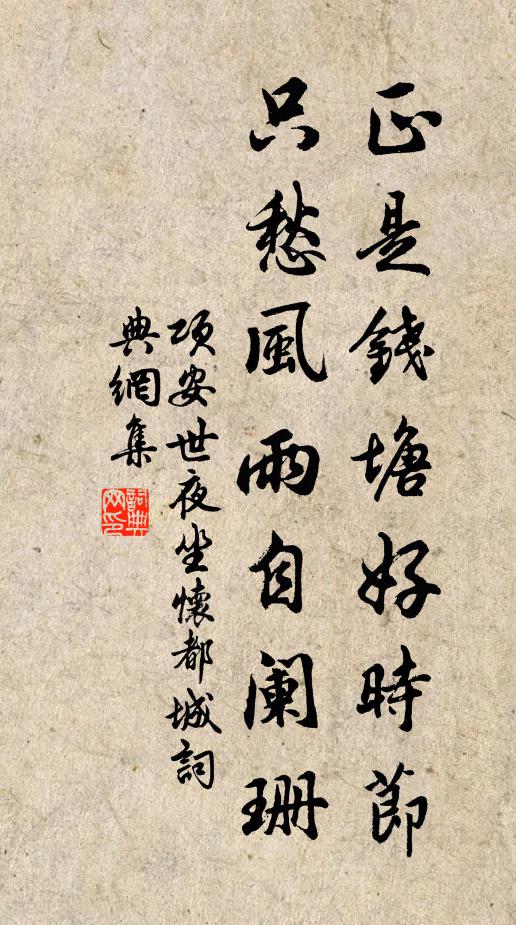 正是錢塘好時節
只愁風雨自阑珊
項安世夜坐懷都城詞
典網集
詞典网印